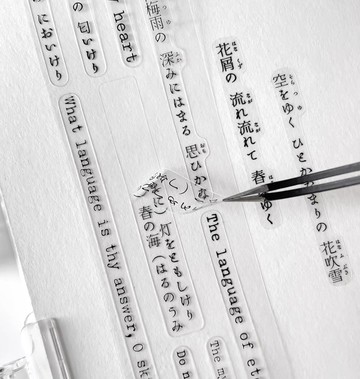 空をゆく ひとか まりの 花吹雪
花屑の 流れ流れて 春 ゆく
梅雨の 深みにはまる 思ひかな
The language of ete
灯をともしけり
春の海(はるのうみ
The m
Do n
y heart
の 匂いけり
においけり
What language is thy answer, O sk